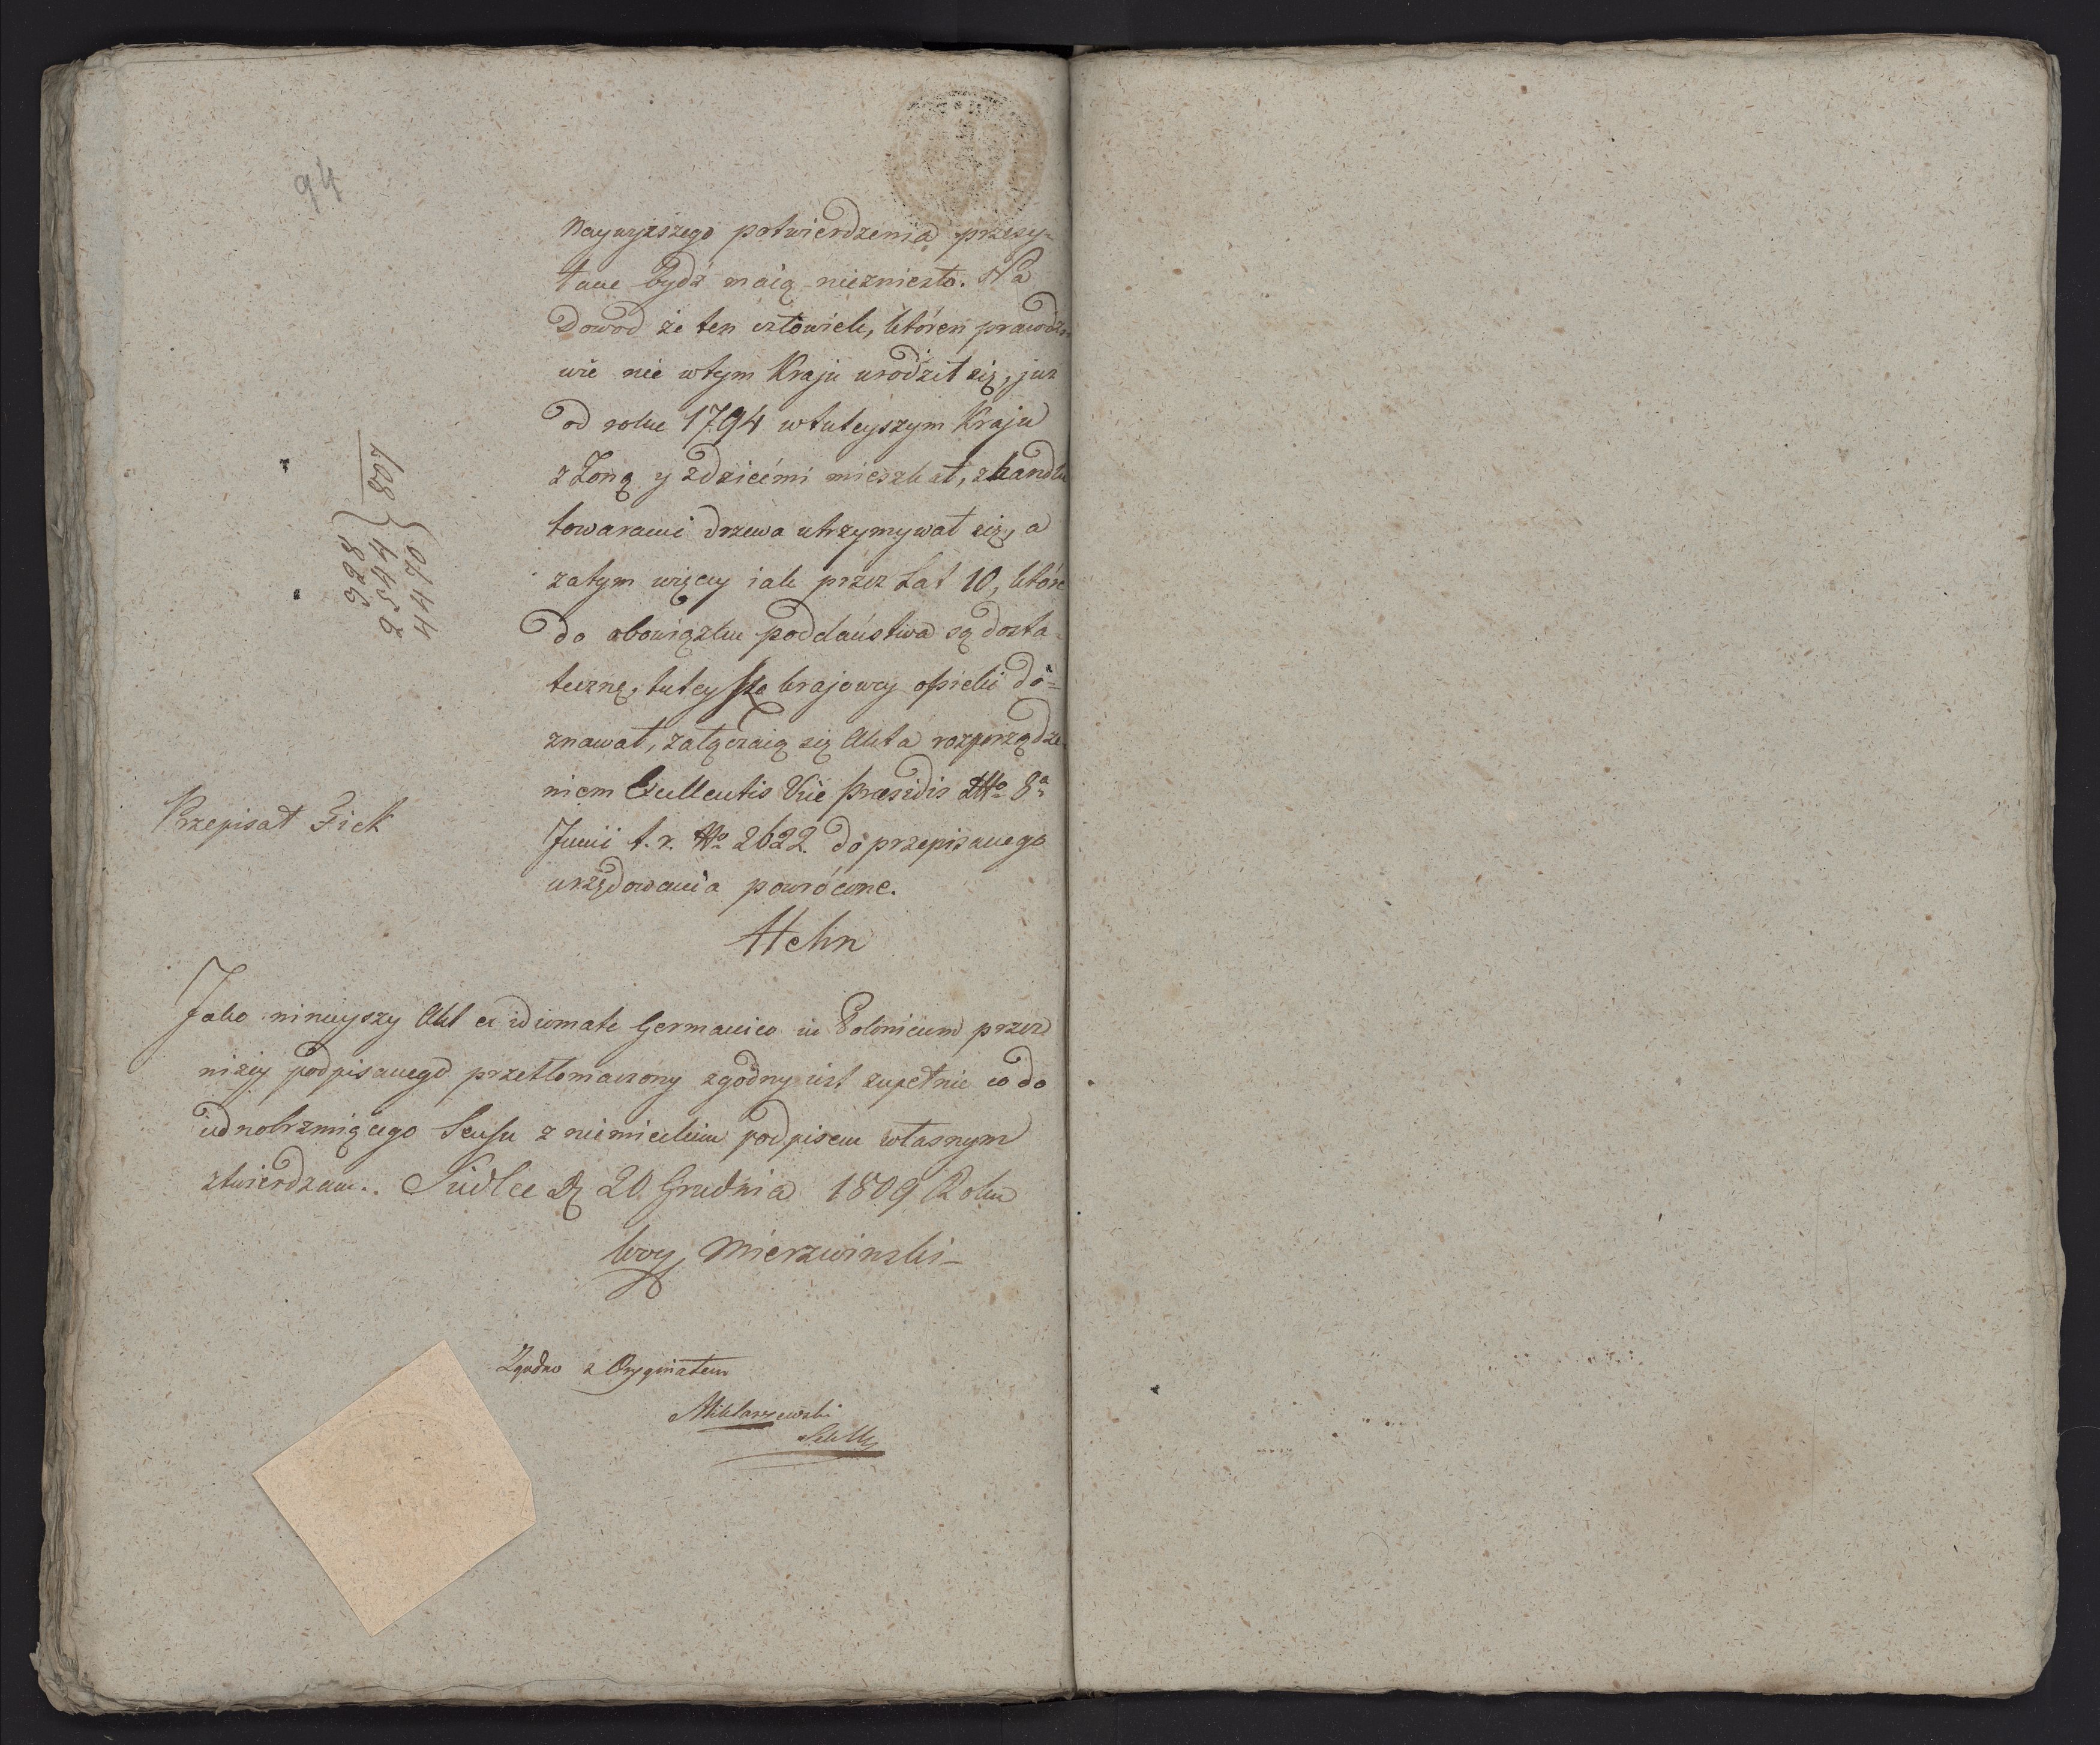 94
Naywyższego potwierdzenia przesy-
łane bydź maią niezniesło. Na
Dowod że ten człowiek, któren prawdzi
wie nie wtym Kraju urodził się, już
od roku 1794 wtuteyszym Kraju
z Żoną y zdziećmi mieszkał, zhandlu
towarami drzewa utrzymywał się, a
zatym więcy iak przez Lat 10, które
do obowiązku poddaństwa są dosta-
teczne, tuteysze krajowey opieki do=
znawał, załączaią się Akta rozporządze-
niem Excellentis Vice præsidis dtto 8a
Junii t. r. No 2622. do przepisanego
urzędowania powrócone.
Hehn
928
2544
4470
807
Przepisał Fick
Jako ninieyszy Akt ex idiomate Germanico in Polonicum przez
niżey podpisanego przetłomaczony zgodny iest zupełnie co do
iednobrzmiącego Sensu z niemieckim podpisem własnym
ztwierdzam. Siedlce d 20 Grudnia 1809 Roku
Mierzwinski
Zgodno z Oryginałem